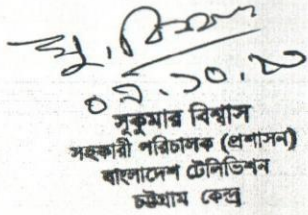 ০৭.১০.২
সুকুমার বিশ্বাস
সহকারী পরিচালক (প্রশাসন)
বাংলাদেশ টেলিভিশন
চট্টগ্রাম কেন্দ্র